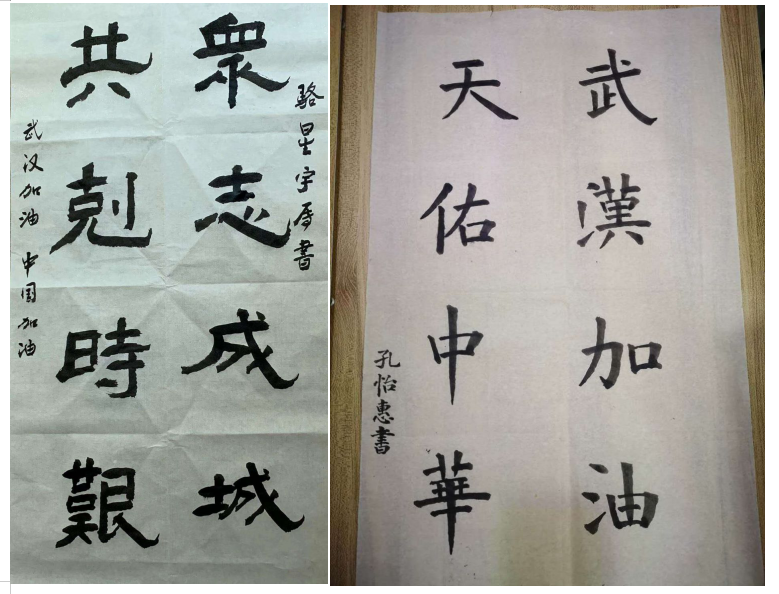 骆星宇 书
眾志成城
共剋時艱
武汉加油 中国加油
武漢加油
天佑中華
孔怡惠書